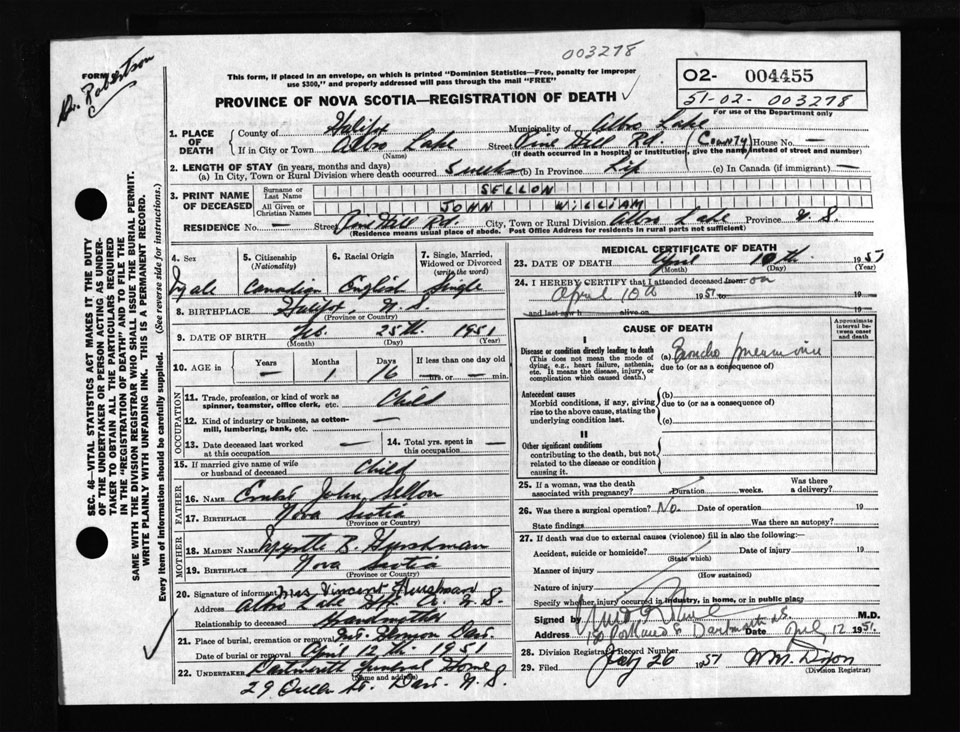 003278
FORM
Dr. Robertson
This form, if placed in an envelope, on which is printed "Dominion Statistics—Free, penalty for improper
use $300," and properly addressed will pass through the mail "FREE"
PROVINCE OF NOVA SCOTIA—REGISTRATION OF DEATH
O2- 004455
51-02-003278
For use of the Department only
1. PLACE OF DEATH
County of Halifx Municipality of Albro Lake
If in City or Town Albro Lake Street Pine Hill Rd (County) House No. —
(Name) (If death occurred in a hospital or institution, give the name instead of street and number)
2. LENGTH OF STAY (in years, months and days)
(a) In City, Town or Rural Division where death occurred 5 weeks (b) In Province Life (c) In Canada (if immigrant) —
3. PRINT NAME OF DECEASED
Surname or Last Name SELLON
All Given or Christian Names JOHN WILLIAM
RESIDENCE No. — Street Pine Hill Rd. City, Town or Rural Division Albro Lake Province N.S.
(Residence means usual place of abode. Post Office Address for residents in rural parts not sufficient)
4. Sex Male
5. Citizenship (Nationality) Canadian
6. Racial Origin English
7. Single, Married, Widowed or Divorced (write the word) Single
8. BIRTHPLACE Halifx, N.S.
(Province or Country)
9. DATE OF BIRTH Feb. 25th 1951
(Month) (Day) (Year)
10. AGE in Years — Months 1 Days 16 If less than one day old — hrs. or — min.
OCCUPATION
11. Trade, profession, or kind of work as spinner, teamster, office clerk, etc. Child
12. Kind of industry or business, as cotton-mill, lumbering, bank, etc. —
13. Date deceased last worked at this occupation —
14. Total yrs. spent in this occupation —
15. If married give name of wife or husband of deceased Child
FATHER
16. NAME Ernest John Sellon
17. BIRTHPLACE Nova Scotia
(Province or Country)
MOTHER
18. MAIDEN NAME Myrtle B. Hurshman
19. BIRTHPLACE Nova Scotia
(Province or Country)
20. Signature of informant Mrs Vincent Hurshman
Address Albro Lake Hfx Co. N.S.
Relationship to deceased Grandmother
21. Place of burial, cremation or removal Mt. Hermon Dar.
Date of burial or removal April 12th 1951
22. UNDERTAKER Dartmouth Funeral Home
(Name and address)
29 Queen St. Dar. N.S.
MEDICAL CERTIFICATE OF DEATH
23. DATE OF DEATH April 10th 1951
(Month) (Day) (Year)
24. I HEREBY CERTIFY that I attended deceased from on
April 10th 1951 19
and last saw h alive on 19
CAUSE OF DEATH
Approximate interval between onset and death
I
Disease or condition directly leading to death
(This does not mean the mode of dying, e.g., heart failure, asthenia, etc. It means the disease, injury, or complication which caused death.)
(a) Broncho pneumonia
due to (or as a consequence of)
Antecedent causes
Morbid conditions, if any, giving rise to the above cause, stating the underlying condition last.
(b)
due to (or as a consequence of)
(c)
II
Other significant conditions
contributing to the death, but not related to the disease or condition causing it.
25. If a woman, was the death associated with pregnancy? Duration weeks. Was there a delivery?
26. Was there a surgical operation? No. Date of operation 19
State findings Was there an autopsy?
27. If death was due to external causes (violence) fill in also the following:—
Accident, suicide or homicide? Date of injury 19
(State which)
Manner of injury
(How sustained)
Nature of injury
Specify whether injury occurred in industry, in home, or in public place
Signed by M.D.
Address Portland St Dartmouth N.S. Date July 12 1951
28. Division Registrar's Record Number
29. Filed July 26 1951 W.M. Dixon
(Division Registrar)
SEC. 46—VITAL STATISTICS ACT MAKES IT THE DUTY
OF THE UNDERTAKER OR PERSON ACTING AS UNDER-
TAKER TO OBTAIN ALL THE PARTICULARS REQUIRED
IN THE "REGISTRATION OF DEATH" AND TO FILE THE
SAME WITH THE DIVISION REGISTRAR WHO SHALL ISSUE THE BURIAL PERMIT.
WRITE PLAINLY WITH UNFADING INK. THIS IS A PERMANENT RECORD.
Every item of information should be carefully supplied. (See reverse side for instructions.)